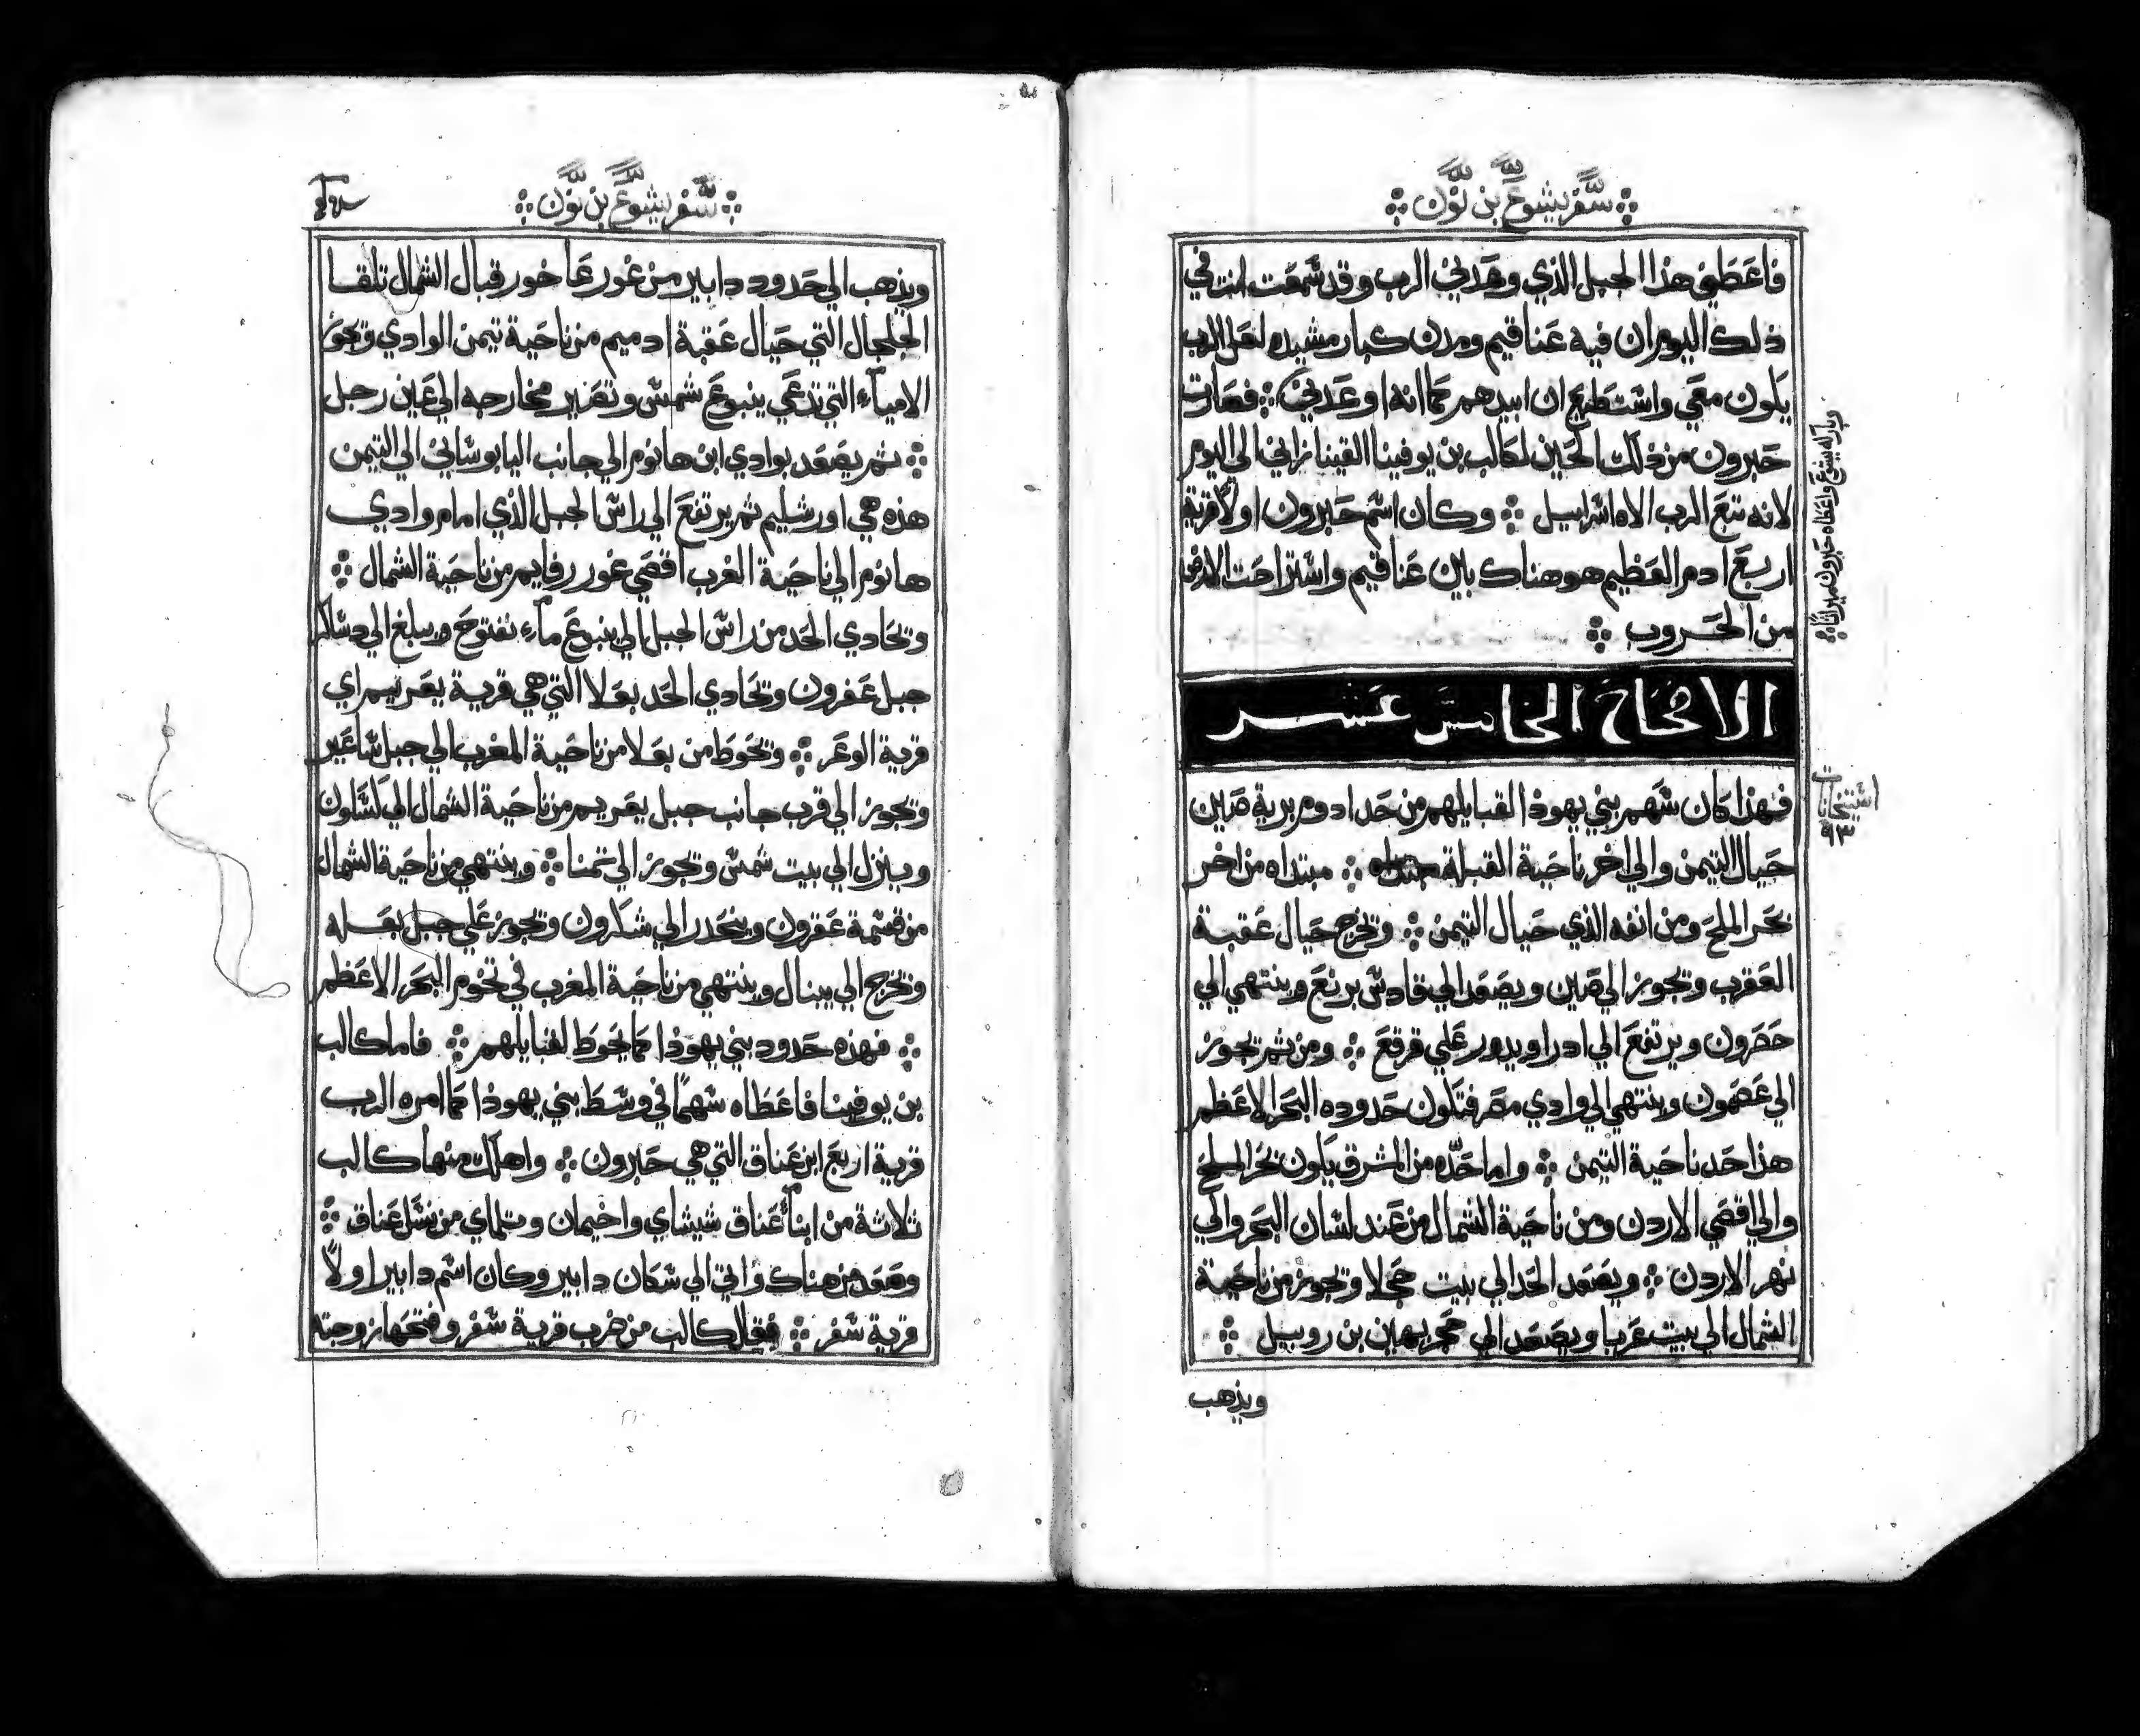 سفر يشوع بن نون
فاعطني هذا الجبل الذي وعدني الرب وقد سمعت انت في
ذلك اليوم ان فيه عناقيم ومدن كبار مشيده لعل الرب
يكون معي واستطيع ان ابيدهم كما انه اوعدني فصارت
حبرون من ذلك الحين لكالب بن يوفينا القينازاني الي اليوم
لانه تبع الرب الاه اسراييل وكان اسم حبرون اولاً قرية
اربع ادم العظيم هو هناك باين عناقيم واستراحت الارض
من الحروب
بارك له يشوع واعطاه حبرون ميراثا
الاصحاح الخامس عشر
استيخانات
٩٣
فهذا كان سهم بني يهوذا لقبايلهم من حد ادوم برية صين
حيال التيمن والي اخر ناحية القبلة مبتداه من اخر
بحر الملح ومن انفه الذي حيال التيمن وتخرج حيال عقبة
العقرب وتجوز الي صين ويصعد الي قادش برنع وينتهي الي
حصرون ويرتفع الي ادرا ويدور علي قرقع ومن ثم تجوز
الي عصمون وينتهي الي وادي مصر فتكون حدوده البحر الاعظم
هذا حد ناحية التيمن واما حدّه من المشرق يكون بحر الملح
والي اقصي الاردن ومن ناحية الشمال من عند لسان البحر والي
نهر الاردن ويصعد الحد الي بيت حجلا وتجوز من ناحية
الشمال الي بيت عربا ويصعد الي حجر بهاين بن روبيل
ويذهب
سفر يشوع بن نون
ويذهب الي حدود دابير من غور عاخور قبال الشمال تلقا
الجلجال التي حيال عقبة ادميم من ناحية تيمن الوادي وتجوز
الامياء التي تدعي ينبوع شمس وتصير مخارجه الي عين رجل
ثم يصعد بوادي ابن هانوم الي جانب اليابوساني الي التيمن
هذه هي اورشليم ثم يرتفع الي راس الجبل الذي امام وادي
هانوم الي ناحية الغرب اقصي غور رفاييم من ناحية الشمال
وتحادي الحد من راس الجبل الي ينبوع ماء نفتوح ويبلغ الي دساكر
جبل عفرون وتحادي الحد بعلا التي هي قرية يعرييم اي
قرية الوعر وتحوط من بعلا من ناحية المغرب الي جبل ساعير
وتجوز الي قرب جانب جبل يعرييم من ناحية الشمال الي كسلون
وينزل الي بيت شمس وتجوز الي تمنا وينتهي من ناحية الشمال
من قسمة عقرون وينحدر الي شكرون وتجوز علي جبل بعله
وتخرج الي يبنال وينتهي من ناحية المغرب في تخوم البحر الاعظم
فهذه حدود بني يهوذا كما يحوط لقبايلهم فاما كالب
بن يوفينا فاعطاه سهماً في وسط بني يهوذا كما امره الرب
قرية اربع ابن عناق التي هي حبرون واهلك منها كالب
ثلاثة من ابناء عناق شيشاي واخيمان وتلماي من نسل عناق
وصعد من هناك واتي الي سكان دابير وكان اسم دابير اولاً
قرية سفر فقال كالب من ضرب قرية سفر وفتحها زوجته